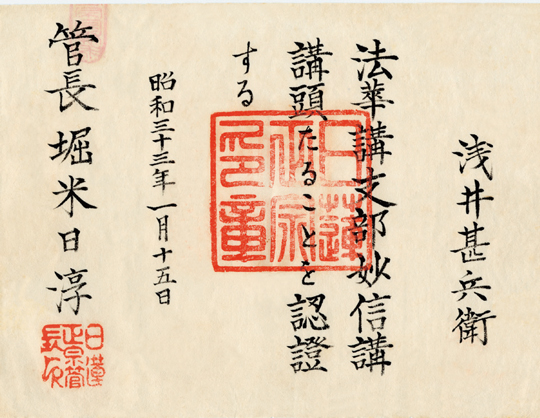 浅井甚兵衛
法華講支部妙信講
講頭たることを認證
する
昭和三十三年一月十五日
管長 堀米日淳
日蓮
正宗
印章
日蓮
正宗管
長印